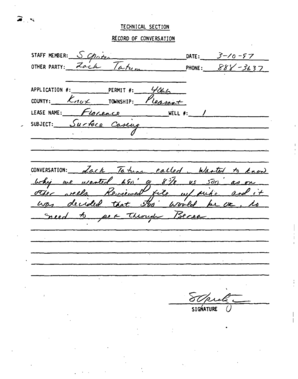 TECHNICAL SECTION
RECORD OF CONVERSATION
STAFF MEMBER: DATE: 3-10-97
OTHER PARTY: Zach Tatum PHONE: 88X-3637
APPLICATION #: PERMIT #:
COUNTY: Knox TOWNSHIP: Pleasant
LEASE NAME: Florence WELL #: 1
SUBJECT: Surface Casing
CONVERSATION: Zack Tatum called. Wanted to know
why we wanted 650' of 8 5/8 vs 500' as on
other wells. Reviewed file w/ and it
was decided that 500' would be OK. No
need to go through Berea
SIGNATURE